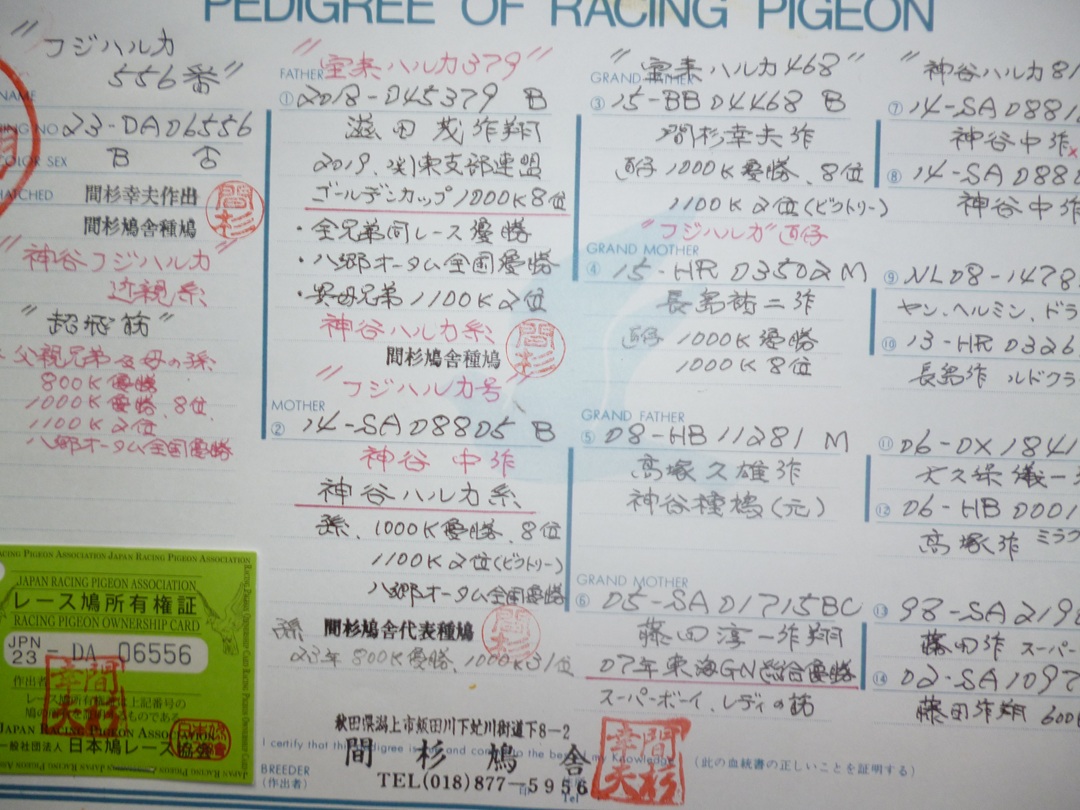 PEDIGREE OF RACING PIGEON
"フジハルカ
556番"
NAME
RING NO 23-DA06556
COLOR SEX B ♂
HATCHED 間杉幸夫作出
間杉鳩舎種鳩
間杉
"神谷フジハルカ"
近親系
"超飛筋"
父親兄弟及母の孫
800K優勝
1000K優勝、8位
1100K2位
八郷オータム全国優勝
"宝来ハルカ379"
FATHER
① 2018-D45379 B
滋田茂作翔
2019、関東支部連盟
ゴールデンカップ1000K8位
・全兄弟同レース優勝
・八郷オータム全国優勝
・異母兄弟1100K2位
神谷ハルカ系
間杉鳩舎種鳩
間杉
"フジハルカ号"
MOTHER
② 14-SA08805 B
神谷 中作
神谷ハルカ系
孫、1000K優勝、8位
1100K2位(ビクトリー)
八郷オータム全国優勝
孫 間杉鳩舎代表種鳩
間杉
23年800K優勝、1000K31位
"宝来ハルカ468"
GRAND FATHER
③ 15-BB04468 B
間杉幸夫作
直仔1000K優勝、8位
1100K2位(ビクトリー)
"フジハルカ"直仔
GRAND MOTHER
④ 15-HR03502M
長島祐二作
直仔1000K優勝
1000K8位
GRAND FATHER
⑤ 08-HB11281 M
高塚久雄作
神谷種鳩(元)
GRAND MOTHER
⑥ 05-SA01715BC
藤田淳一作翔
07年東海GN総合優勝
スーパーボーイ、レディの筋
"神谷ハルカ81
⑦ 14-SA0881
神谷中作
⑧ 14-SA0880
神谷中作
⑨ NL08-1478
ヤン、ヘルミン、ドラ
⑩ 13-HR0326
長島作 ルドクラ
⑪ 06-DX1841
大久保儀一
⑫ 06-HB0001
高塚作 ミラク
⑬ 98-SA219
藤田作 スーパー
⑭ 02-SA1097
藤田作翔 600
RACING PIGEON ASSOCIATION JAPAN RACING PIGEON ASSOCIATION
JAPAN RACING PIGEON ASSOCIATION
レース鳩所有権証
RACING PIGEON OWNERSHIP CARD
JPN
23 - DA 06556
作出者
レース鳩所有権証は上記番号の
鳩の
ものである
JAPAN RACING PIGEON ASSOCIATION
一般社団法人 日本鳩レース協会
秋田県潟上市飯田川下虻川街道下8-2
I certify that this pedigree is and correct to the best of my Knowledge
間杉鳩舎
BREEDER
(作出者)
TEL(018)877-5956
Tel
間杉幸夫
(此の血統書の正しいことを証明する)